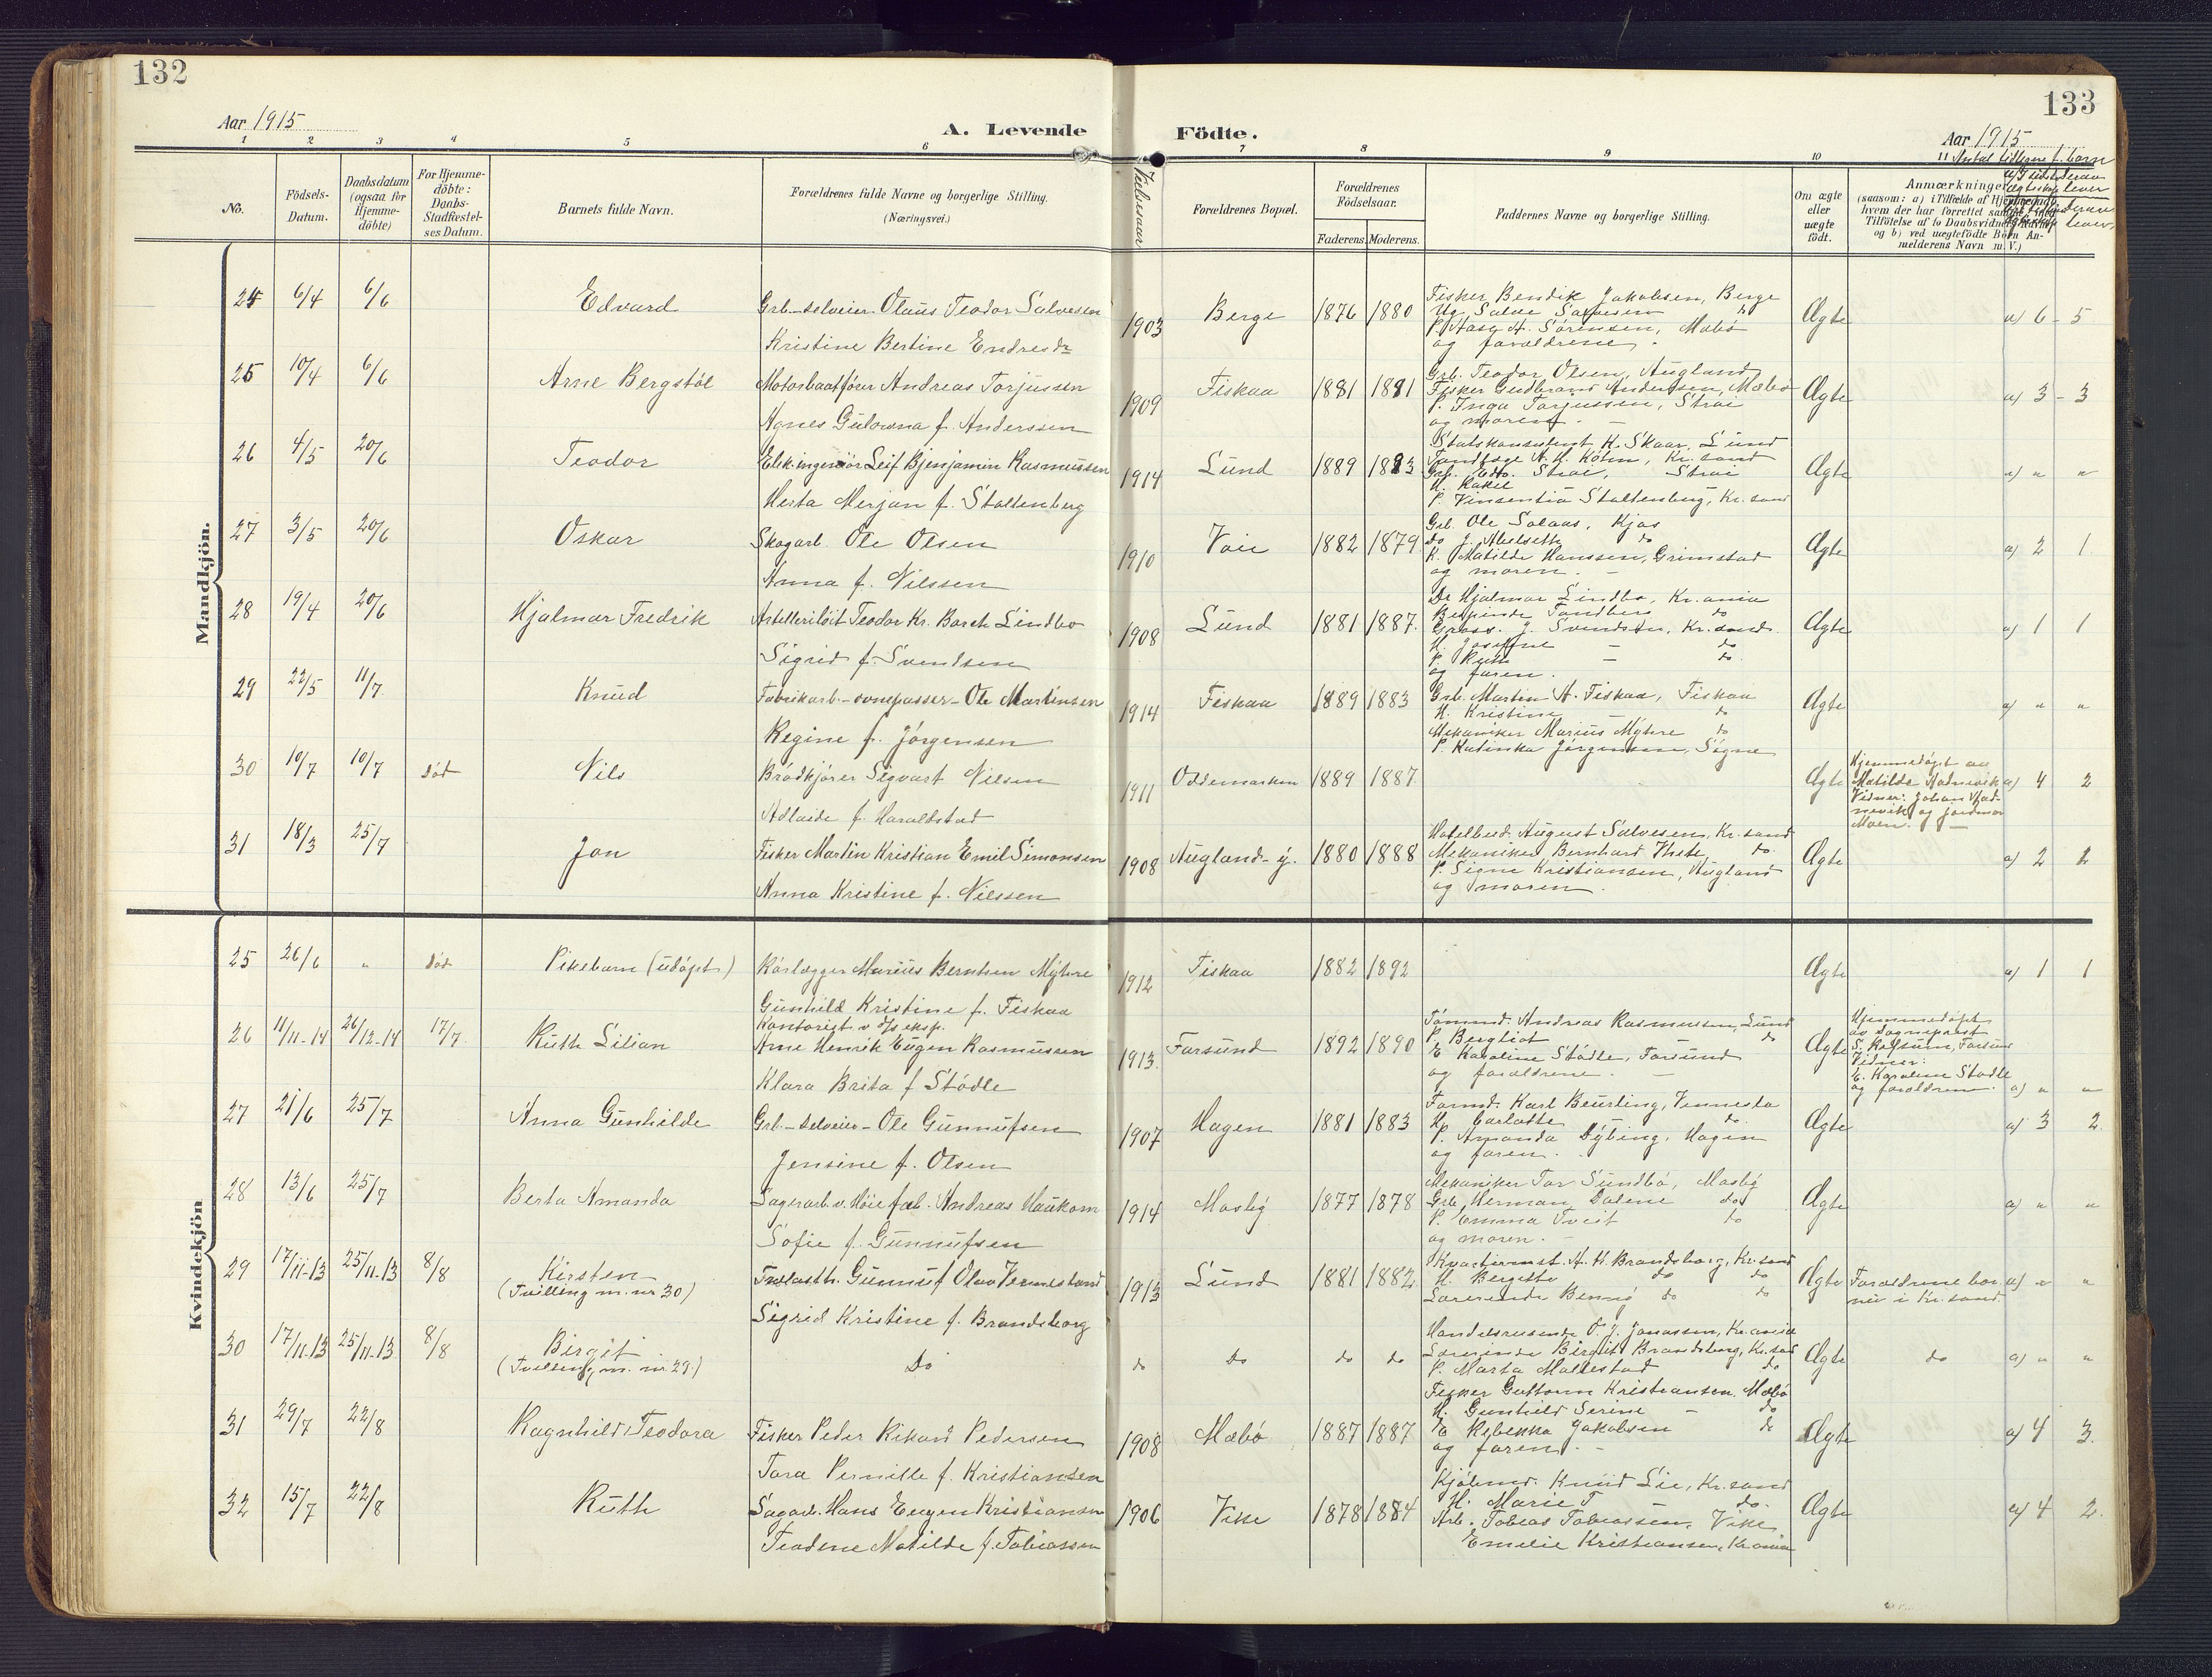 132
133
Aar 1915
A. Levende Födte.
Aar 1915
1 2 3 4 5 6 7 8 9 10 11
No.
Födsels-Datum.
Daabsdatum (ogsaa for Hjemme-döbte)
For Hjemme-döbte: Daabs-Stadfæstel-ses Datum.
Barnets fulde Navn.
Forældrenes fulde Navne og borgerlige Stilling.
(Næringsvei.)
Vielsesaar
Forældrenes Bopæl.
Forældrenes Födselsaar.
Faderens. Moderens.
Faddernes Navne og borgerlige Stilling.
Om ægte eller uægte födt.
Mandkjön.
25 6/4 6/6 Edvard Grb.-selveier Olaus Teodor Salvesen 1903 Berge 1876 1880 Fisker Bendik Jakobsen, Berge Ægte a) 6 - 5
Ug. Salve Salvesen do
Kristine Bertine Endresdr P. Aasa A. Sörensen, Mæbö
og forældrene.
25 10/4 6/6 Arne Bergstöl Motorbaatförer Andreas Torjussen 1909 Fiskaa 1881 1881 Grb. Teodor Olsen, Augland Ægte a) 3 - 3
Fisker Gudbrand Andersen, Mæbö
P. Inga Torjussen, Strai
Agnes Gulowna f. Anderssen og moren.
26 4/5 20/6 Teodor Elek.ingeniör Leif Bjenjamin Rasmussen 1914 Lund 1889 1883 Statskonsulent K. Skaar, Lund Ægte a) " "
Tandlæge A. H. Holm, Kr.sand
Grb. Edv. Strai, Strai
H. Rakel
Herta Merjan f. Stoltenberg P. Vinsentia Stoltenberg, Kr.sand
27 3/5 20/6 Oskar Skogarb. Ole Olsen 1910 Voie 1882 1879 Grb. Ole Solaas, Kjos Ægte a) 2 1
do J. Abelseth do
K. Matilde Hanssen, Grimstad
Anna f. Nilssen og moren.
28 19/4 20/6 Hjalmar Fredrik Artelleriløit Teodor Kr. Borch Lindbo 1908 Lund 1881 1887 Dr Hjalmar Lindbo, Kr.ania Ægte a) 1 1
Tandberg do
Gross. J. Svendsen, Kr.sand.
H. Josefine - do
P. Ruth - do
Sigrid f. Svendsen og faren.
29 22/5 11/7 Knud Fabrikarb.-ovnpasser- Ole Martinsen 1914 Fiskaa 1889 1883 Grb. Martin A. Fiskaa, Fiskaa Ægte a) " "
H. Kristine do
Mekaniker Marius Myhre do
Regine f. Jörgensen P. Katinka Jörgensen, Sögne
30 10/7 10/7 död Nils Brödkjörer Sigvart Nilsen 1911 Oddemarken 1889 1887 Ægte Hjemmedöpt av a) 4 2
Adlaide f. Haraldstad Vidner: Johan
Moen.
31 18/3 25/7 Jon Fisker Martin Kristian Emil Simonsen 1908 Augland-y. 1880 1888 Hotelbud. August Salvesen, Kr.sand Ægte a) 2 2
Mekaniker Bernhard do
P. Signe Kristiansen, Augland
Anna Kristine f. Nilssen og moren.
Kvindekjön
25 26/6 " död Pikebarn (udöpt) Rörlægger Marius Berntsen Myhre 1912 Fiskaa 1882 1892 Ægte a) 1 1
Gunhild Kristine f. Fiskaa
26 11/11-14 26/12-14 17/7 Ruth Lilian Kontorist v d/s eksp. Arne Henrik Eugen Rasmussen 1913 Farsund 1892 1890 Tömmd. Andreas Rasmussen, Lund Ægte Hjemmedöpt
P. Bergliot - do av sogneprest
E Karoline Stödle, Farsund Farsund
Klara Brita f Stödle og forældrene. Vidner:
E. Karoline Stödle
og forældrene. a) " "
27 21/6 25/7 Anna Gunhilde Grb.-selveier- Ole Gunnufsen 1907 Hagen 1881 1883 Formd. Karl Beurling, Vennesla Ægte a) 3 2
H. Carlotte do.
P. Amanda Hagen
Jensine f. Olsen og faren.
28 13/6 25/7 Berta Amanda Lagerarb. v. Höie fab. Andreas Haukom 1914 Mosby 1877 1878 Mekaniker Tor Sundbö, Mosby Ægte a) " "
Grb. Herman Dalene do
P. Emma Tveit do
Sofie f. Gunnufsen og moren.
29 17/11-13 25/11-13 8/8 Kirsten Gunnuf Olav Vennesland 1913 Lund 1881 1882 A. H. Brandsborg, Kr.sand Ægte Forældrene bor a) " "
(Tvilling m. nr 30) H. Bergitte do do nu i Kr.sand.
Sigrid Kristine f. Brandsborg Lærerinde do do
30 17/11-13 25/11-13 8/8 Birgit Do do Do do do Handelsreisende O. J. Jonassen, Kr.ania Ægte do a) " "
(Tvilling m. nr. 29.) Lærerinde Birgit Brandsborg, Kr.sand
P. Marta Mollestad do
31 29/7 22/8 Ragnhild Teodora Fisker Peder Rikard Pedersen 1908 Mæbö 1887 1887 Fisker Guttorm Kristiansen, Mæbö Ægte a) 4 3.
H. Gunhild Serine - do
E Rebekka Jakobsen do
Tora Pernille f. Kristiansen og faren.
32 15/7 22/8 Ruth Sagarb. Hans Eugen Kristiansen 1906 Vike 1878 1884 Knud Lie, Kr.sand Ægte a) 4 2.
H. Marie T - do.
Arb. Tobias Tobiassen, Vike
Teodene Matilde f. Tobiassen Emelie Kristiansen, Kr.ania